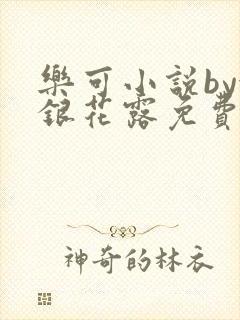 樂可小説by
銀花露免費
神奇的林衣